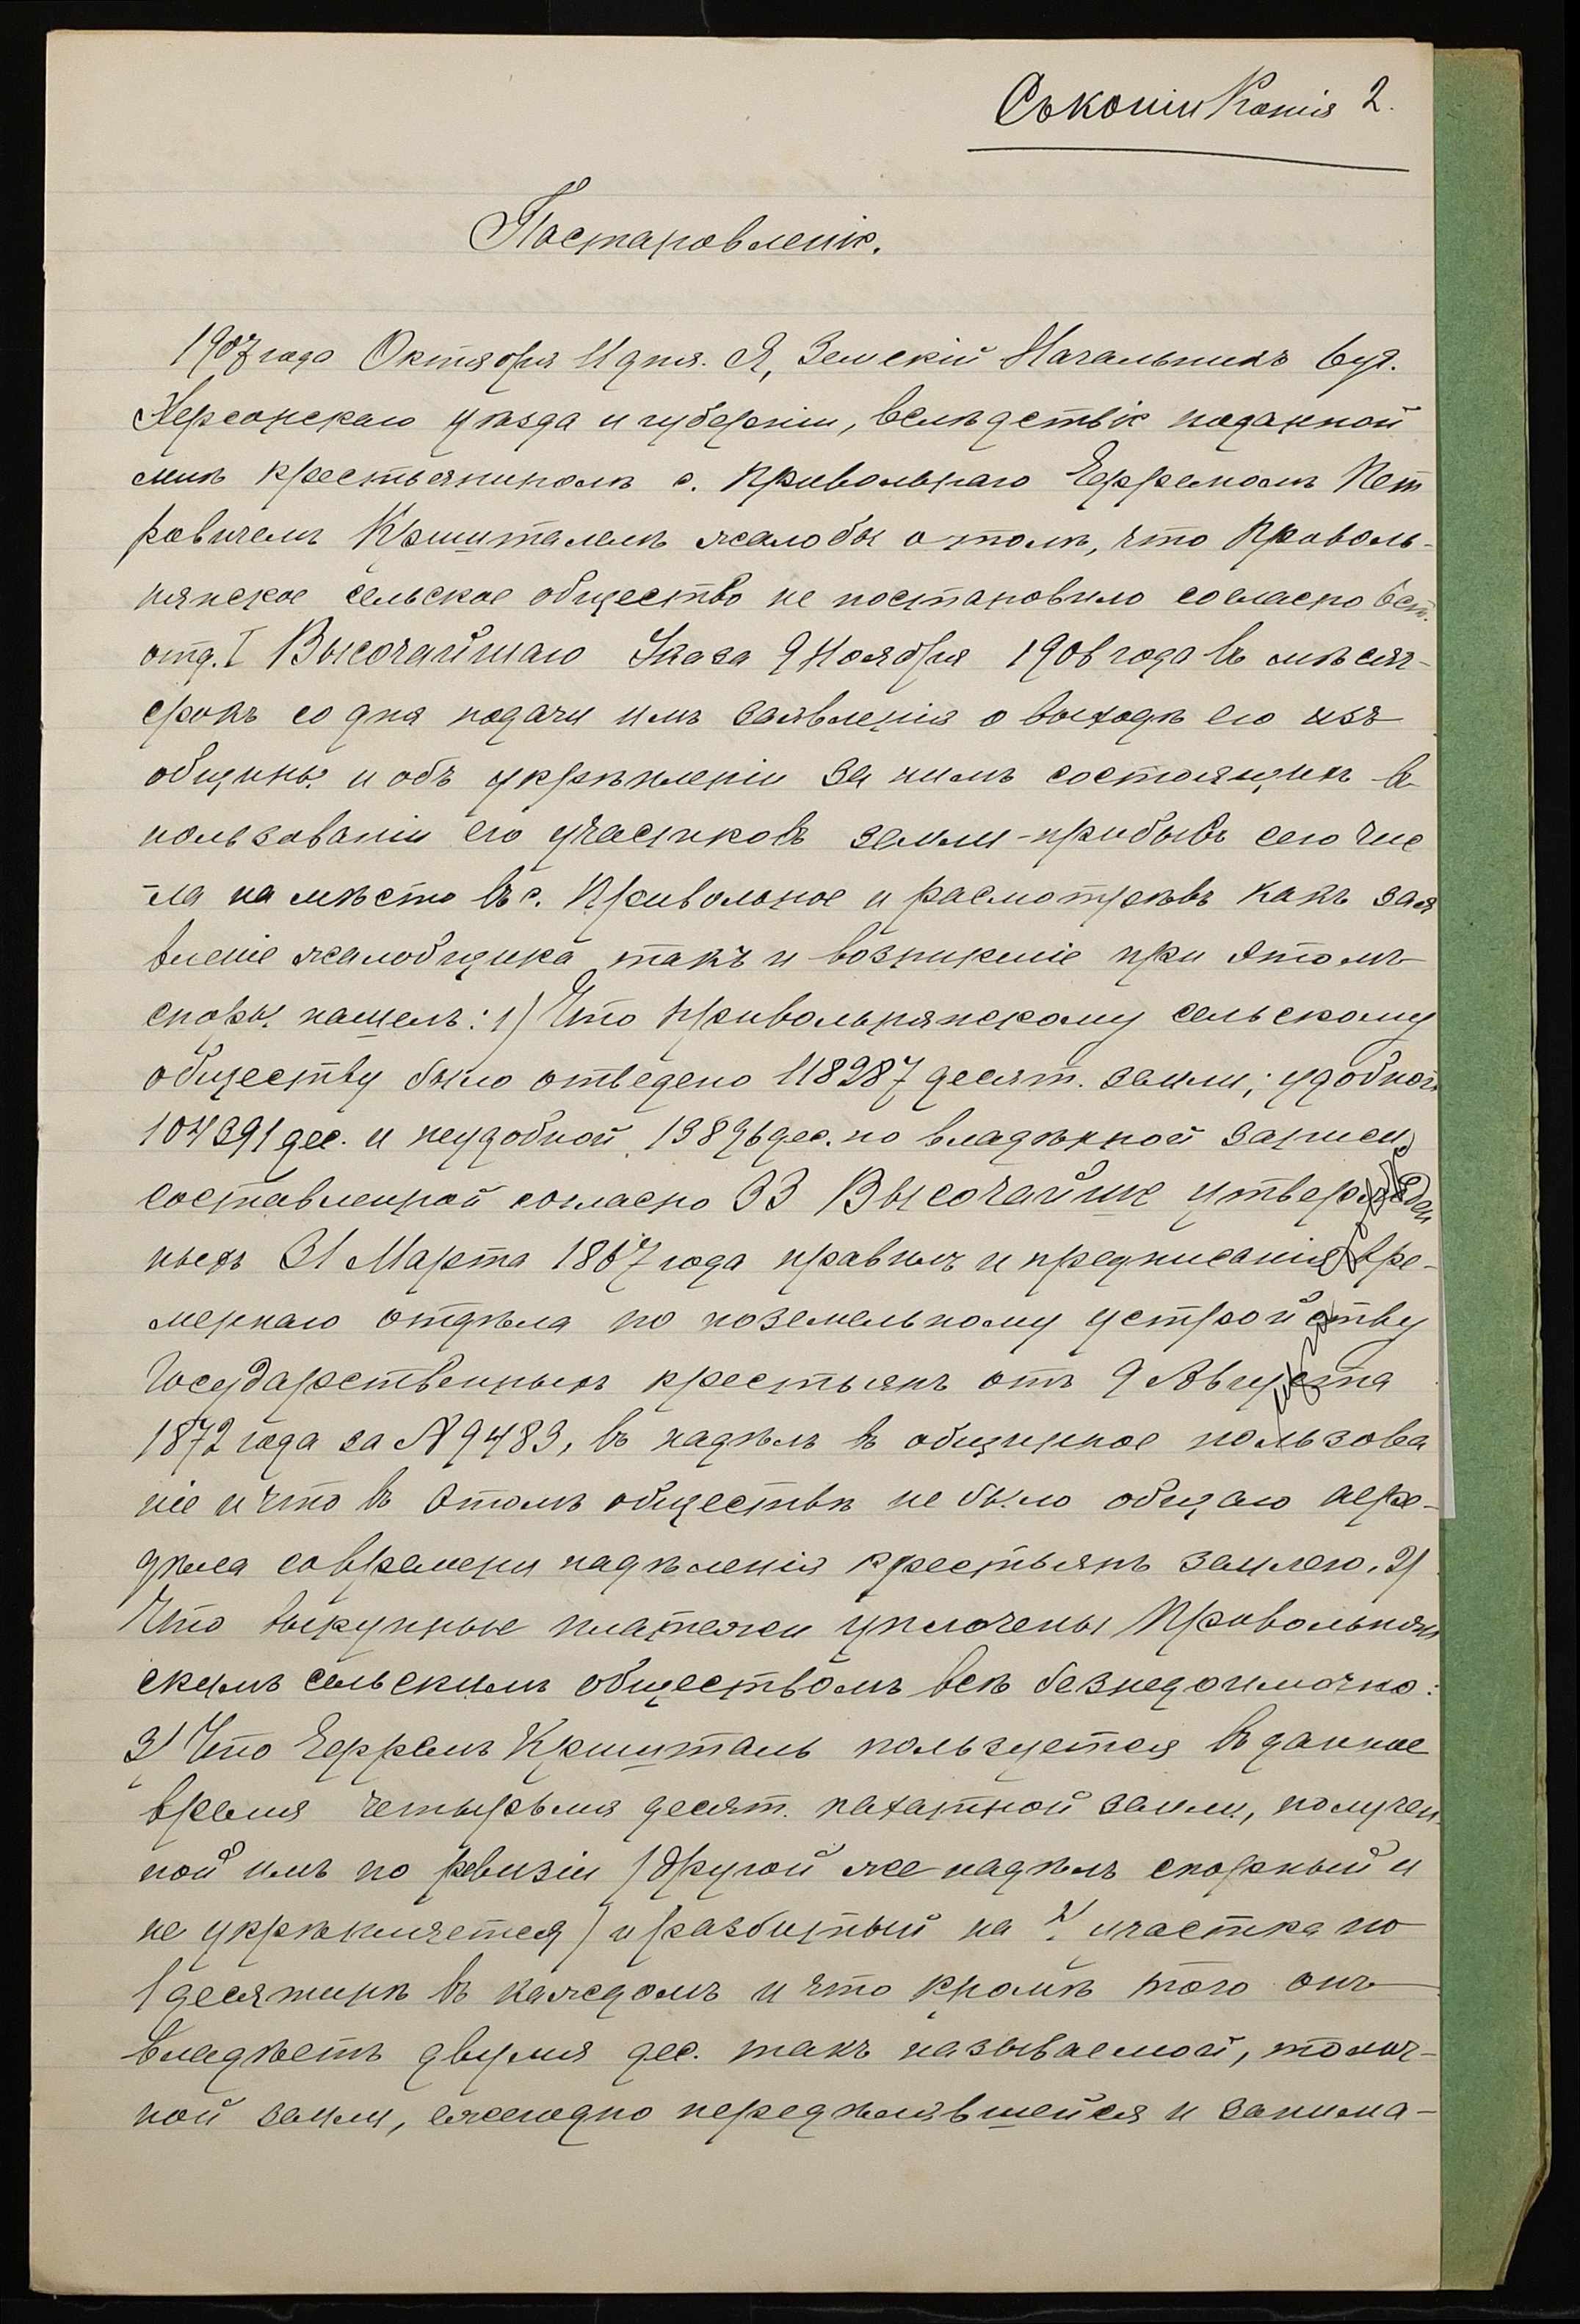 Съ копіи Копія 2.
Постановленіе.
1907 года Октября 11 дня. Я, Земскій Начальникъ 6 уч.
Херсонскаго уѣзда и губерніи, вслѣдствіе поданной
мнѣ крестьяниномъ с. Привольнаго Ефремомъ Пет
ровичемъ Кришталемъ жалобы о томъ, что Приволь-
нянское сельское общество не постановило согласно 6 ст.
отд. I Высочайшаго Указа 9 Ноября 1906 года въ мѣсяч-
срокъ со дня подачи имъ заявленія о выходѣ его изъ
общины и объ укрѣпленіи за нимъ состоящихъ въ
пользованіи его участковъ земли - прибывъ сего чис
ла на мѣсто въ с. Привольное и расмотрѣвъ какъ зая
вленіе жалобщика такъ и возникшіе при этомъ
споры нашелъ: 1) Что Привольнянскому сельскому
обществу было отведено 11828 7 десят. земли; удобной
10439 1 дес. и неудобной 1389 6 дес. по владѣнной записи,
составленной согласно 33 Высочайше утвержден
ныхъ 31 Марта 1867 года правилъ и предписанія Вре-
меннаго отдѣла по поземельному устройству
Государственныхъ крестьянъ отъ 9 Августа
1872 года за № 9483, въ надѣлъ въ общинное пользова
ніе и что въ этомъ обществѣ не было общаго пере-
дѣла со времени надѣленія крестьянъ землею. 2)
Что выкупные платежи уплочены Привольнян
скимъ сельскимъ обществомъ всѣ безнедоимочно:
3) Что Ефремъ Кришталь пользуется въ данное
время четырьмя десят. пахатной земли, получен
ной имъ по ревизіи (другой же надѣлъ спорный и
не укрѣпляется) и разбитый на 4 участка по
1 десятинѣ въ каждомъ и что кромѣ того онъ
владѣетъ двумя дес. такъ называемой, толоч-
ной земли, ежегодно передѣлявшейся и занима-